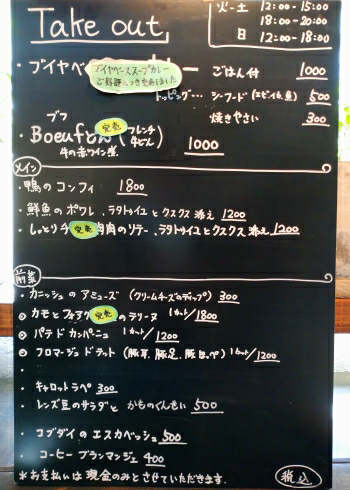 Take out
火-土 12:00-15:00
18:00-20:00
日 12:00-18:00
・ブイヤベ
ブイヤベーススープカレー
ご好評につき
ー ごはん付 1000
トッピング… シーフード 500
焼きやさい 300
ブフ
・Boeuf どん (フレンチ牛どん) 1000
完売
牛の赤ワイン煮
メイン
・鴨のコンフィ 1800
・鮮魚のポワレ、ラタトゥイユとクスクス添え 1200
・しっとりチ 完売 肉のソテー、ラタトゥイユとクスクス添え 1200
前菜
・カニッシュのアミューズ (クリームチーズのディップ) 300
カモとフォアグ 完売 のテリーヌ 1カット/1800
パテドカンパーニュ 1カット/1200
フロマージュドテット (豚耳、豚足、豚ほっぺ) 1カット/1200
・
・キャロットラペ 300
・レンズ豆のサラダと かものくんせい 500
・コブダイのエスカベッシュ 500
・コーヒーブランマンジェ 400
※お支払いは現金のみとさせていただきます。
税込